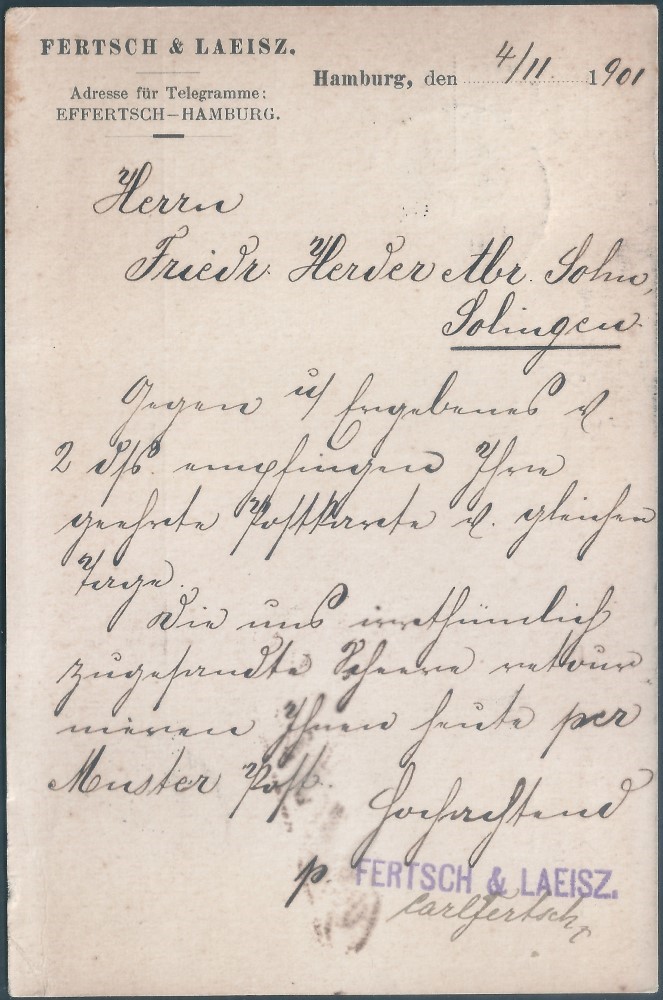 FERTSCH & LAEISZ.
Adresse für Telegramme:
EFFERTSCH-HAMBURG.
Hamburg, den 4/11. 1901
Herrn
Friedr. Herder Abr. Sohn,
Solingen.
Gegen u/ Ergebenes v.
2 dss. empfingen Ihre
geehrte Postkarte v. gleichen
Tage.
Die uns irrthümlich
zugesandte Scheere retour
nieren Ihnen heute per
Muster Post.
Hochachtend
p. FERTSCH & LAEISZ.
Carl Fertsch